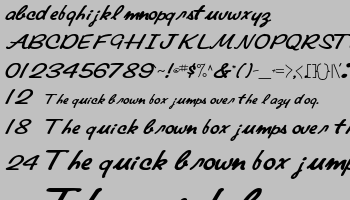 abcdebfghijkl mnopqrstuvwxyz
ABCDEFGHIJKLMNOPQRST
0123456789
12 The quick brown box jumps over the lazy dog.
18 The quick brown box jumps over the
24 The quick brown box jump